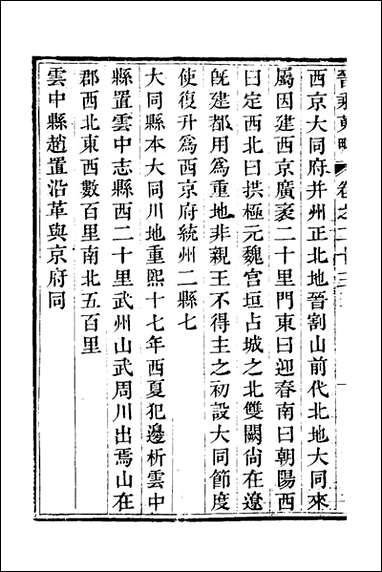 晉乘蒐略 卷之二十三
西京大同府并州正北地晉割山前代北地大同來
屬因建西京廣袤二十里門東曰迎春南曰朝陽西
曰定西北曰拱極元魏宮垣占城之北雙闕尙在遼
旣建都用爲重地非親王不得主之初設大同節度
使復升爲西京府統州二縣七
大同縣本大同川地重熙十七年西夏犯邊析雲中
縣置雲中志縣西二十里武州山武周川出焉山在
郡西北東西數百里南北五百里
雲中縣趙置沿革與京府同